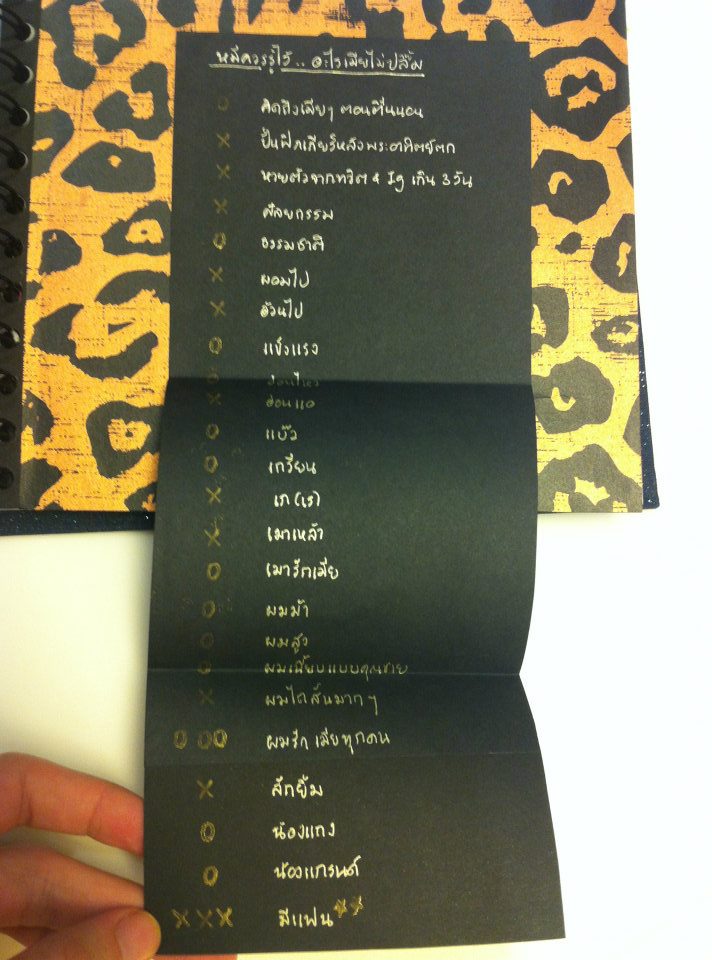 หมีควรรู้ไว้.. อะไรเมียไม่ปลื้ม
O คิดถึงเมียๆ ตอนตื่นนอน
X ปั่นฟิกเกียร์หลังพระอาทิตย์ตก
X หายตัวจากทวิต & Ig เกิน 3 วัน
X ศัลยกรรม
O ธรรมชาติ
X ผอมไป
X อ้วนไป
O แข็งแรง
O อ่อนไหว
X อ่อนแอ
O แบ๊ว
O เกรียน
X เก (เร)
X เมาเหล้า
O เมารักเมีย
O ผมม้า
O ผมสูง
O ผมเนี้ยบแบบคุณชาย
X ผมไถสั้นมากๆ
O OO ผมรักเมียทุกคน
X สักยิ้ม
O น้องแถง
O น้องแกรนด์
X X X มีแฟน**